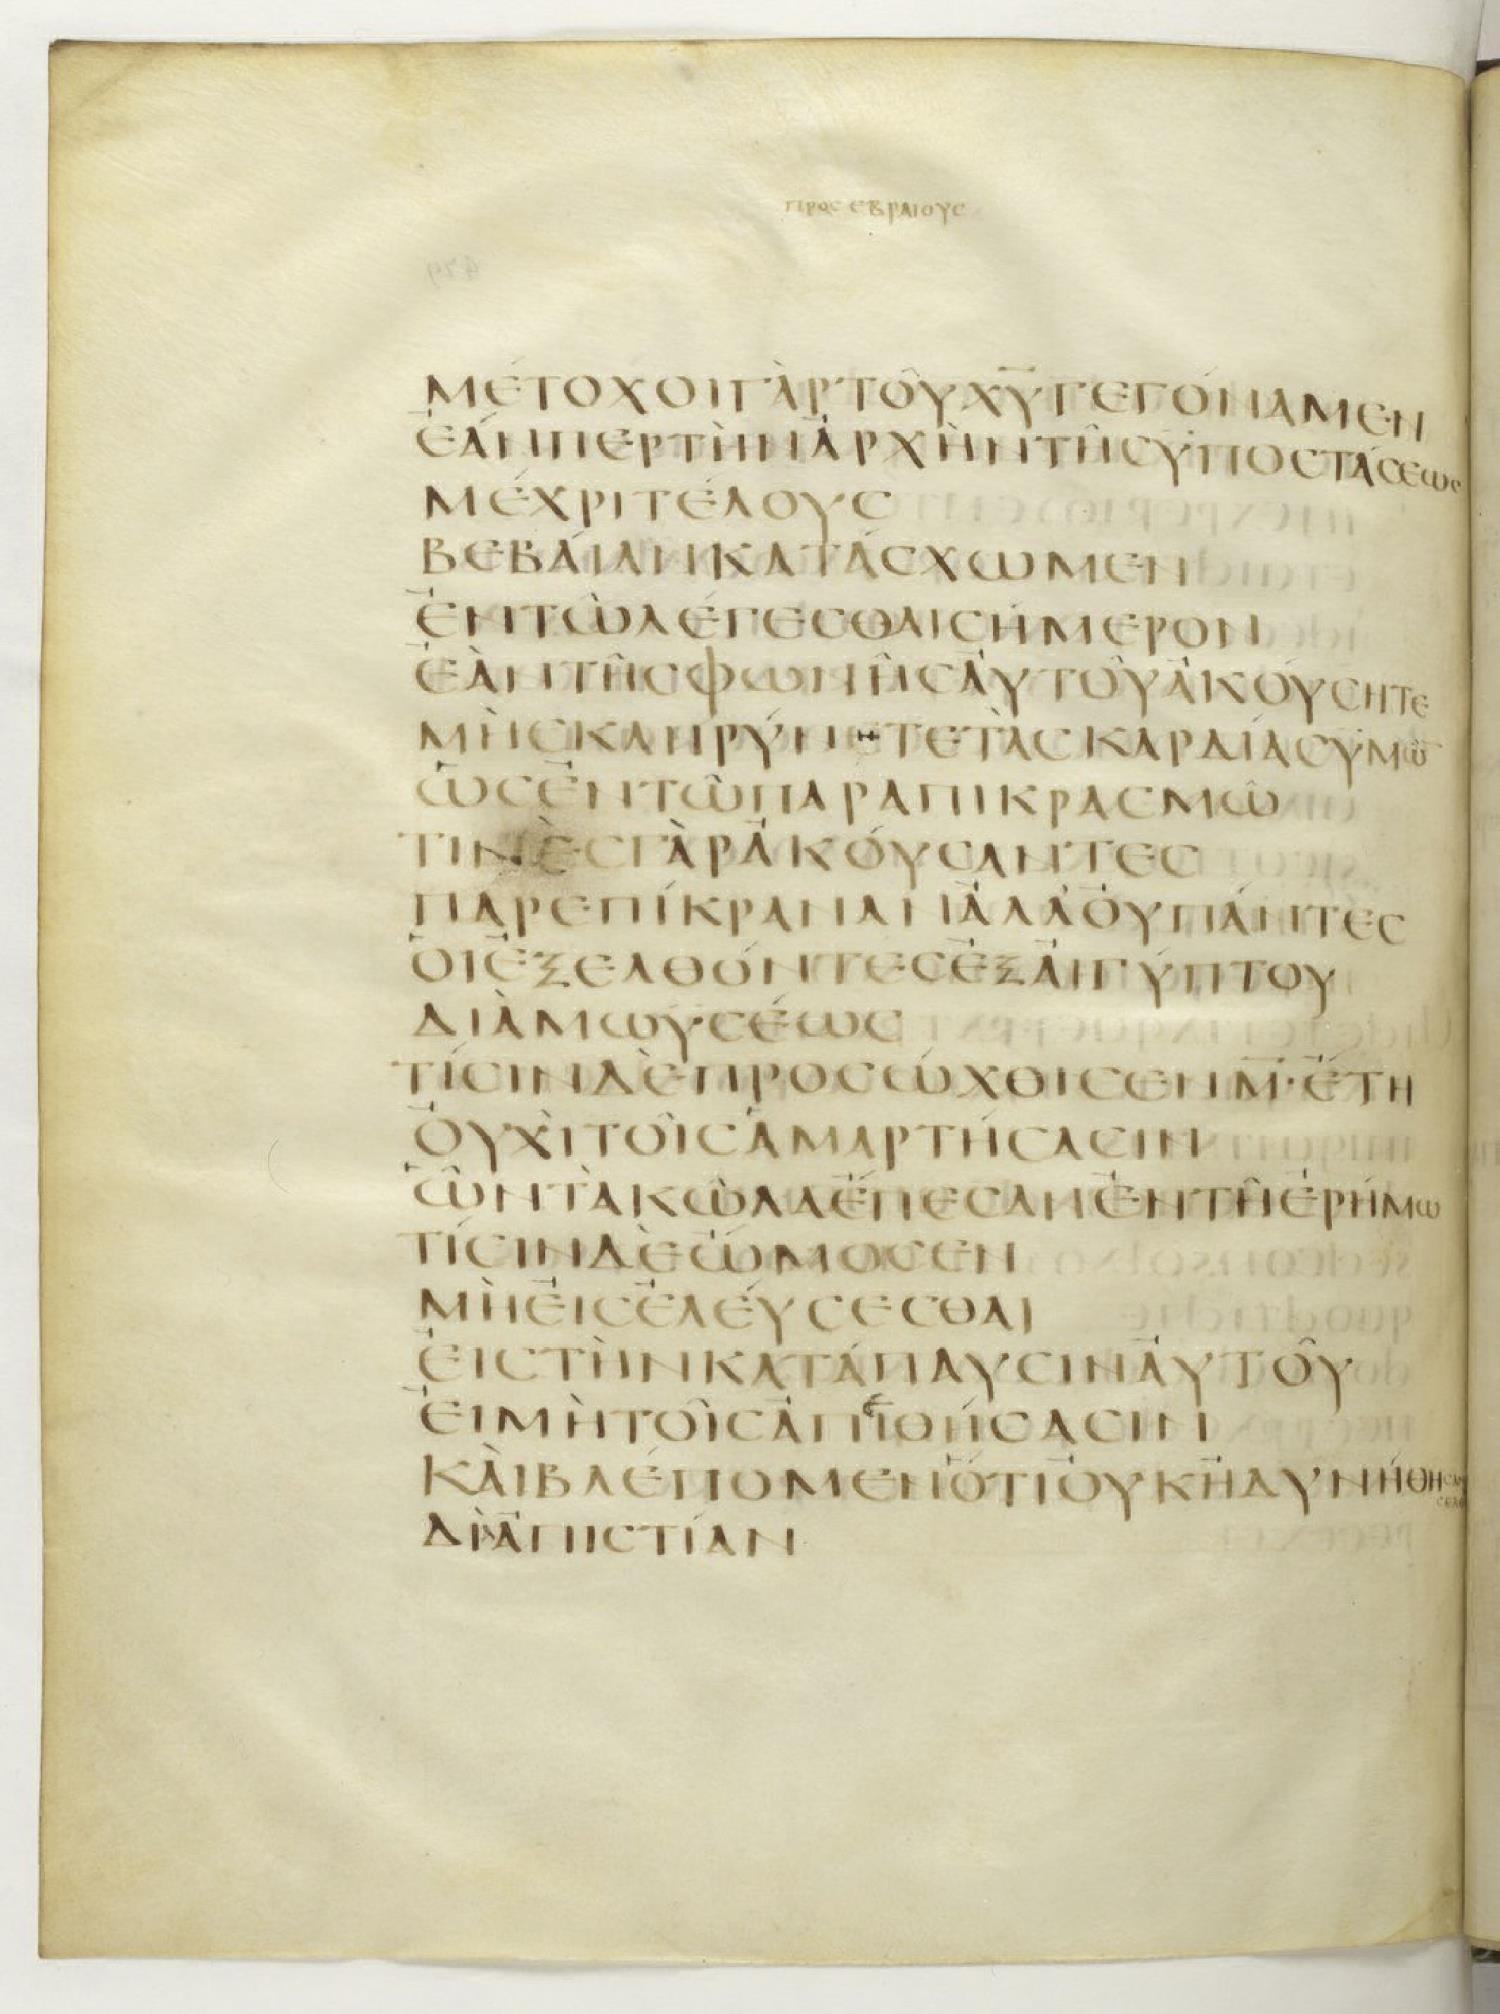 ΠΡΟΣ ΕΒΡΑΙΟΥΣ
ΜΕΤΟΧΟΙΓΑΡΤΟΥΧΥΓΕΓΟΝΑΜΕΝ
ΕΑΝΠΕΡΤΗΝΑΡΧΗΝΤΗΣΥΠΟΣΤΑΣΕΩΣ
ΜΕΧΡΙΤΕΛΟΥΣ
ΒΕΒΑΙΑΝΚΑΤΑΣΧΩΜΕΝ
ΕΝΤΩΛΕΓΕΣΘΑΙΣΗΜΕΡΟΝ
ΕΑΝΤΗΣΦΩΝΗΣΑΥΤΟΥΑΚΟΥΣΗΤΕ
ΜΗΣΚΛΗΡΥΝΗΤΕΤΑΣΚΑΡΔΙΑΣΥΜΩ̅
ΩΣΕΝΤΩΠΑΡΑΠΙΚΡΑΣΜΩ
ΤΙΝΕΣΓΑΡΑΚΟΥΣΑΝΤΕΣ
ΠΑΡΕΠΙΚΡΑΝΑΝΑΛΛΟΥΠΑΝΤΕΣ
ΟΙΕΞΕΛΘΟΝΤΕΣΕΞΑΙΓΥΠΤΟΥ
ΔΙΑΜΩΥΣΕΩΣ
ΤΙΣΙΝΔΕΠΡΟΣΩΧΘΙΣΕΝΜ̅·ΕΤΗ
ΟΥΧΙΤΟΙΣΑΜΑΡΤΗΣΑΣΙΝ
ΩΝΤΑΚΩΛΑΕΠΕΣΑΝΕΝΤΗΕΡΗΜΩ
ΤΙΣΙΝΔΕΩΜΟΣΕΝ
ΜΗΕΙΣΕΛΕΥΣΕΣΘΑΙ
ΕΙΣΤΗΝΚΑΤΑΠΑΥΣΙΝΑΥΤΟΥ
ΕΙΜΗΤΟΙΣΑΠΕΙΘΗΣΑΣΙΝ
ΚΑΙΒΛΕΠΟΜΕΝΟΤΙΟΥΚΗΔΥΝΗΘΗΣΑΝ
ΔΙΑΠΙΣΤΙΑΝ